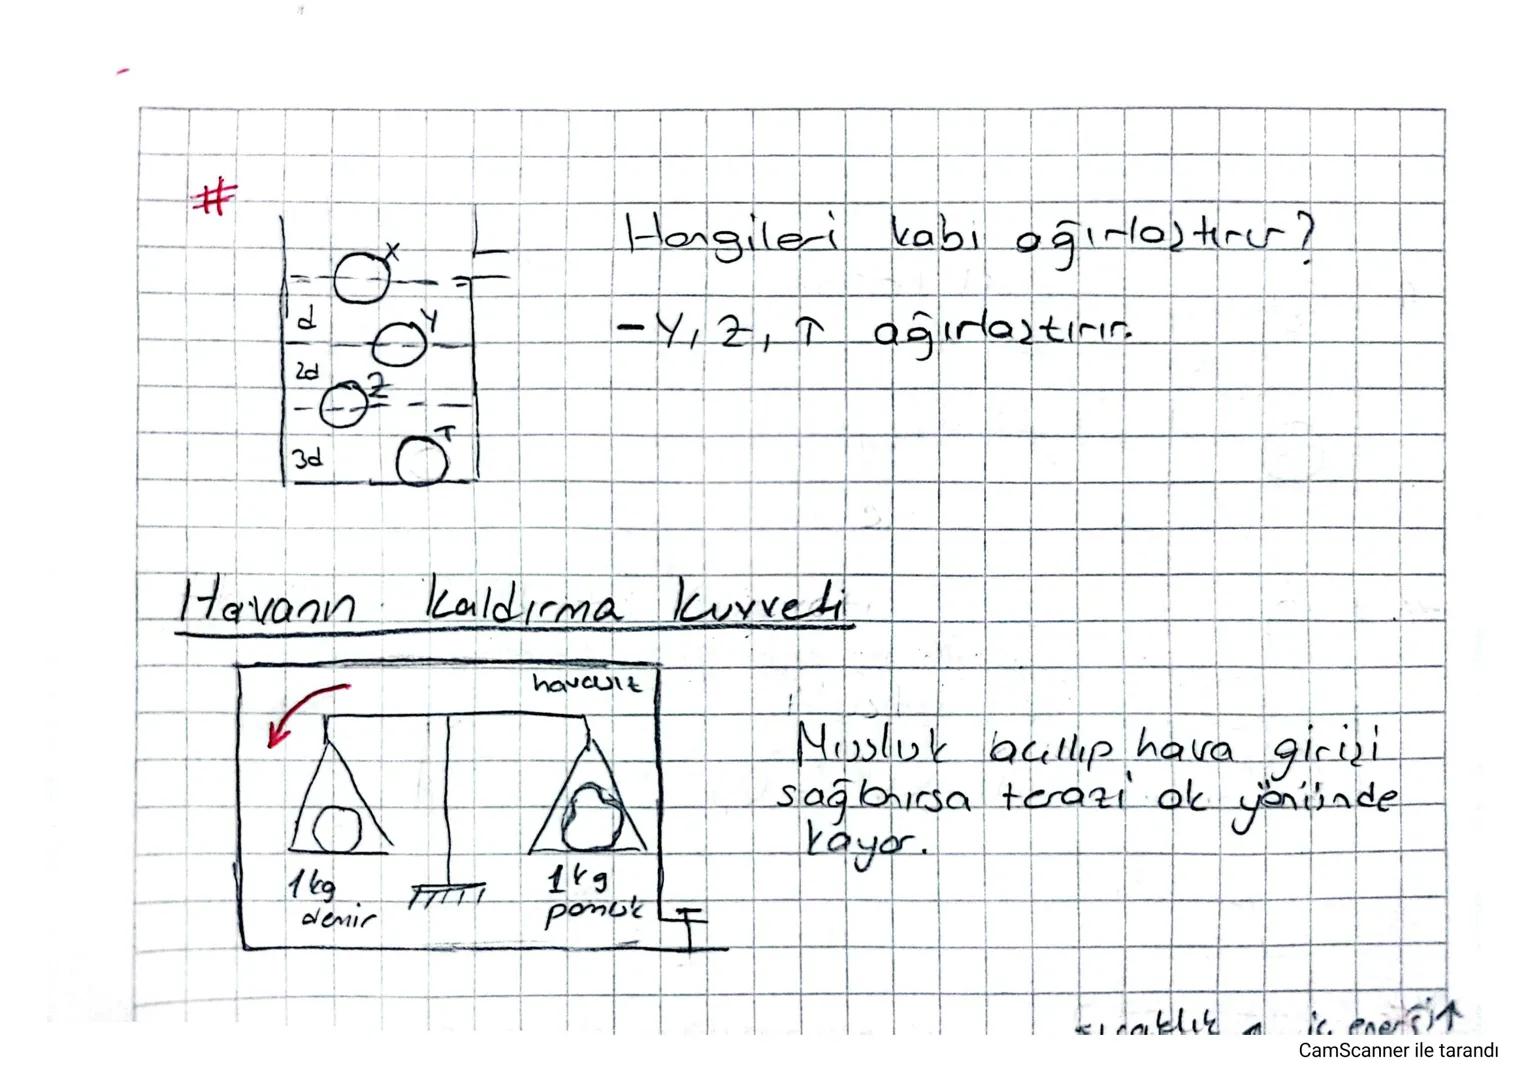 #
Hangileri kabı ağırlaştırır?
- Y, Z, T ağırlaştırır.
X
d
Y
2d
Z
T
3d
Havanın Kaldırma Kuvveti
havasız
Musluk açılıp hava girişi
sağlanırsa terazi ok yönünde
kayar.
1kg
demir
1kg
pamuk
sıcaklık iç enerji↑
CamScanner ile tarandı